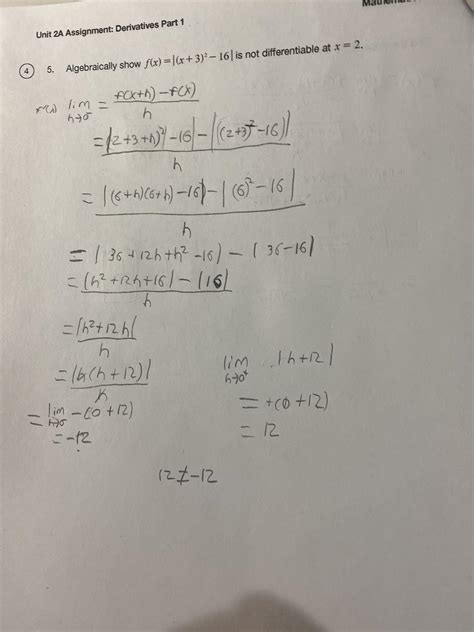 Mathem
Unit 2A Assignment: Derivatives Part 1
4 5. Algebraically show f(x) = |(x + 3)² − 16| is not differentiable at x = 2.
lim h→0⁻ = f(x+h) − f(x) / h
= |(2+3+h)² − 16| − |(2+3)² − 16| / h
= |(6+h)(6+h) − 16| − |(6)² − 16| / h
= | 36 + 12h + h² − 16) − | 36 − 16|
= (h² + 12h + 16| − |16| / h
= |h² + 12h| / h
= |h(h + 12)| / h
lim h→0⁺ |h + 12|
= lim h→0⁻ −(0 + 12)
= +(0 + 12)
= −12
= 12
12 ≠ −12